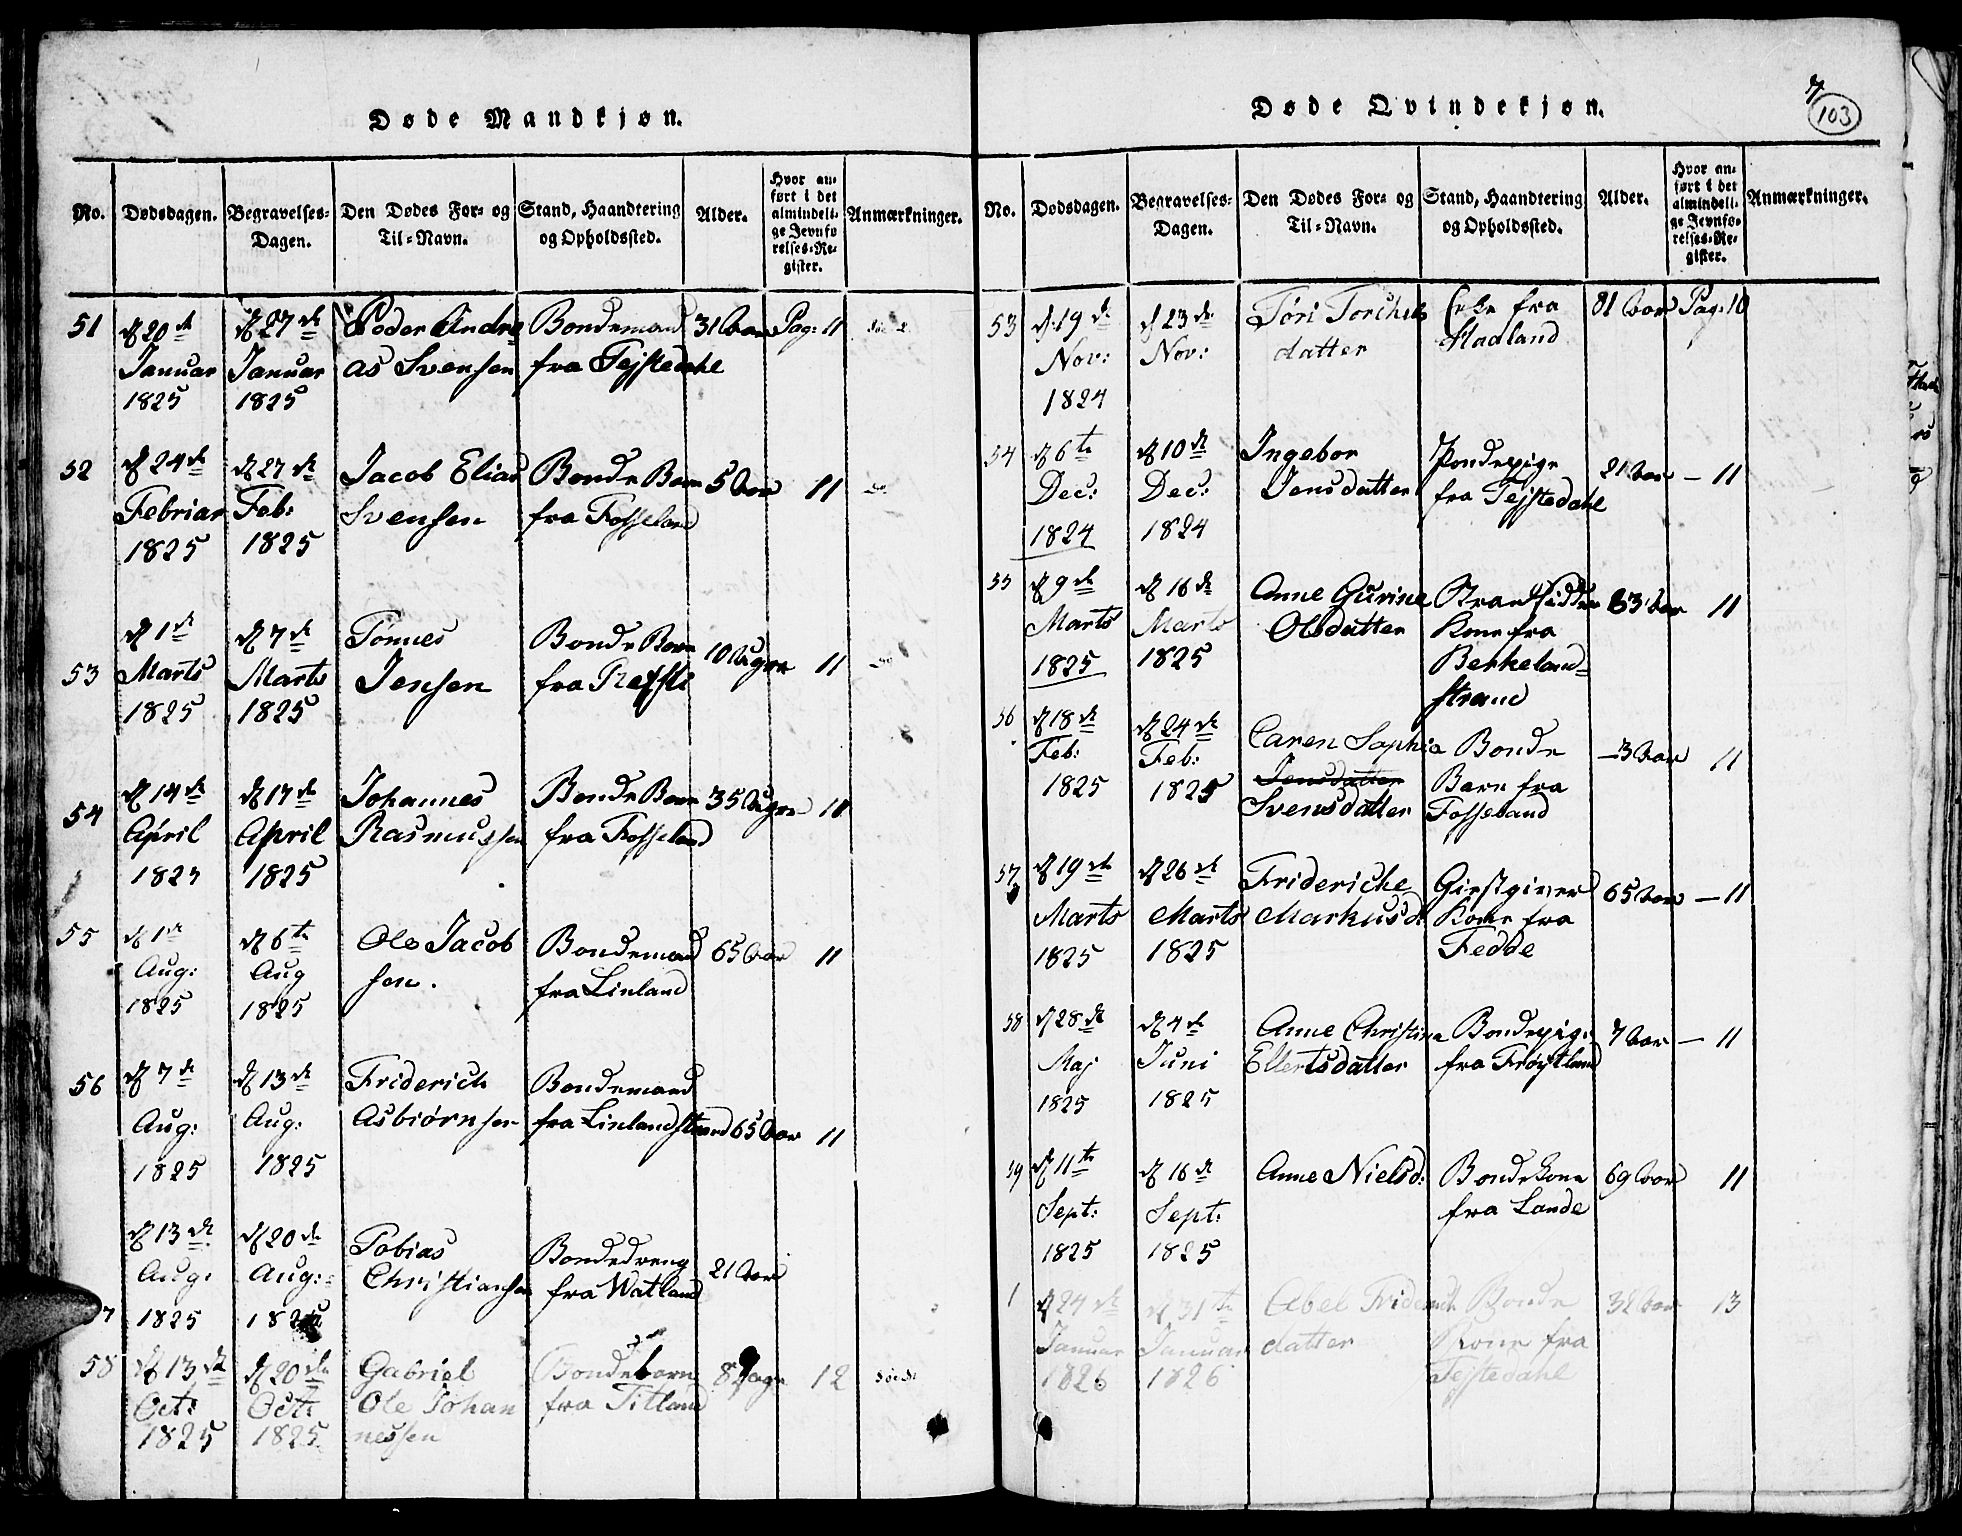 Døde Mandkjøn.
No. Dødsdagen. Begravelses-Dagen. Den Dødes For- og Til-Navn. Stand, Haandtering og Opholdssted. Alder. Hvor anført i det almindelige Jevnførelses-Register. Anmærkninger.
51 d 20de d 27de Peder Andre Bondemand 31 Aar Pag: 11
Januar Januar as Svensen fra Tejstedahl
1825 1825
52 d 24de d 27de Jacob Elias Bonde Barn 5 Aar 11
Februar Feb: Svensen fra Fosseland
1825 1825
d 1de d 7de Tønnes Bonde Barn 10 Uger 11
53 Marts Marts Jensen fra Refsti
1825 1825
d 14de d 17de Johannes Bonde Barn 35 Uger 11
54 April April Rasmussen fra Fosseland
1825 1825
55 d 1de d 6te Ole Jacob Bondemand 65 Aar 11
Aug: Aug sen. fra Linland
1825 1825
56 d 7de d 13de Friderich Bondemand
Aug: Aug: Asbiørnsen fra Linlandstrand 65 Aar 11
1825 1825
d 13de d 20de Tobias Bondedreng 21 Aar
Aug: Aug: Christiansen fra Watland
7 1825 1825
58 d 13de d 20de Gabriel Bondebarn 8 Dage 12
Oct: Oct: Ole Johan fra Titland
1825 1825 nessen
Døde Qvindekjøn.
103
No. Dødsdagen. Begravelses-Dagen. Den Dødes For- og Til-Navn. Stand, Haandtering og Opholdssted. Alder. Hvor anført i det almindelige Jevnførelses-Register. Anmærkninger.
53 d 19de d 23de Töri Torchels Enke fra 81 Aar Pag: 10
Nov: Nov: datter Stadland
1824
54 d 6te d 10de Ingebor Bondepige 21 Aar — 11
Dec: Dec: Jensdatter fra Tejstedahl
1824 1824
55 d 9de d 16de Anne Gurine Strandsidder 83 Aar 11
Marts Marts Olsdatter Kone fra
1825 1825 Berkeland-
strand
56 d 18de d 24de Caren Sophia Bonde — 3 Aar 11
Feb: Feb: Jensdatter Barn fra
1825 1825 Svensdatter Fosseland
57 d 19de d 26de Frideriche Giestgiver 65 Aar — 11
Marts Marts Markusd. Kone fra
1825 1825 Fedde
58 d 28de d 4de Anne Christina Bondepige 7 Aar — 11
Maj Juni Ellertsdatter fra Frøjtland
1825 1825
59 d 11te d 16de Anne Nielsd: Bondekone 69 Aar 11
Sept: Sept: fra Lande
1825 1825
1 d 24de d 31te Abel Friderich Bonde 32 Aar 13
Januar Januar datter Kone fra
1826 1826 Tejstedahl